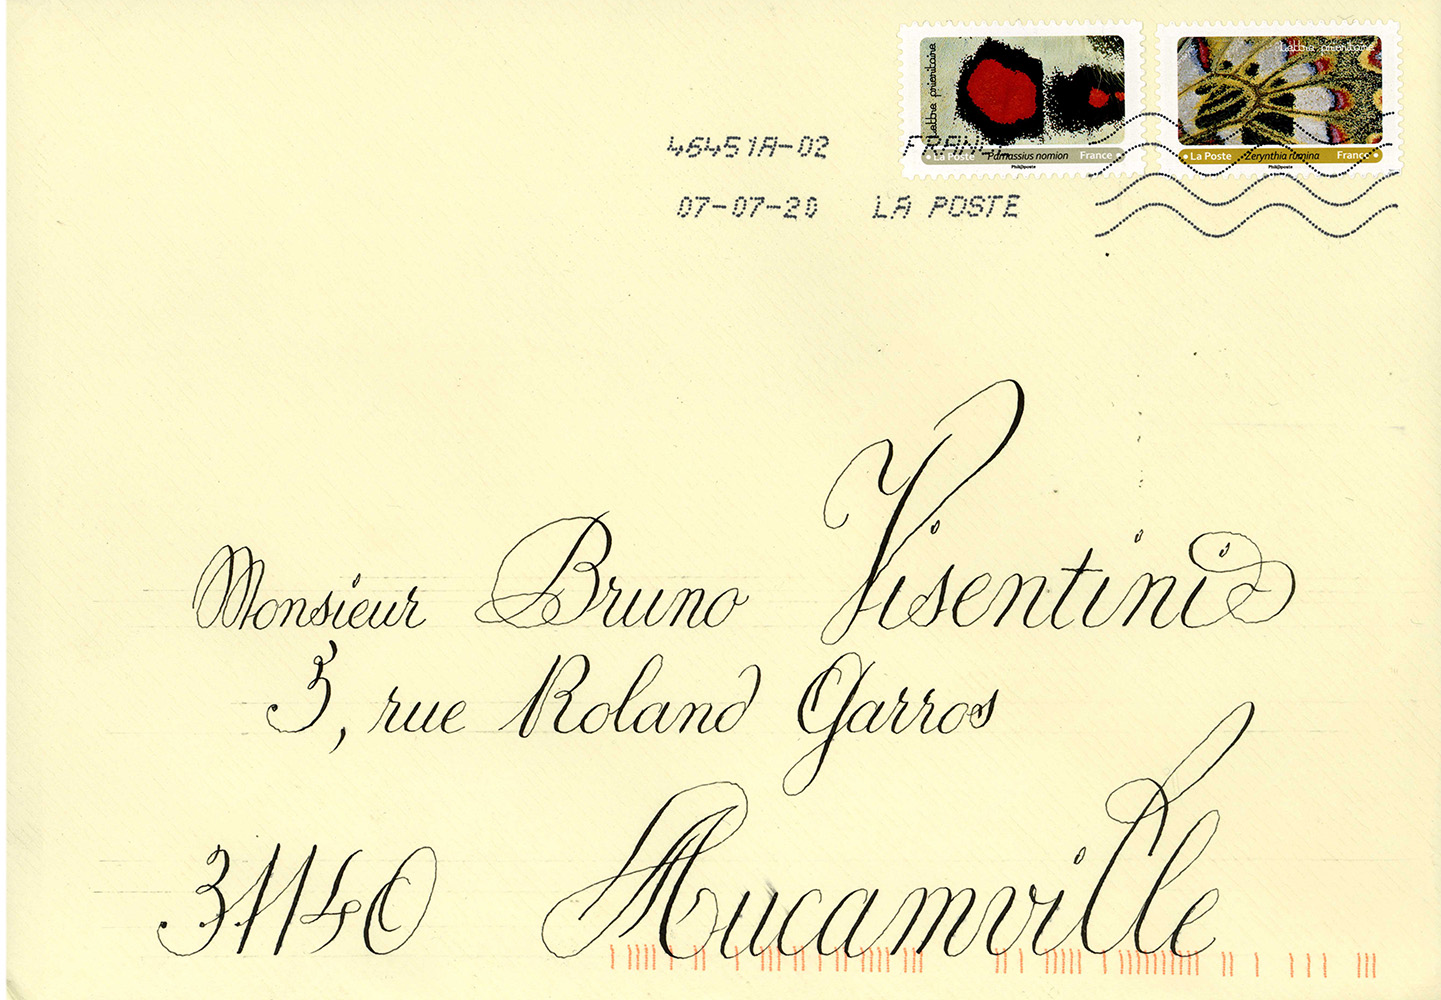 Lettre prioritaire
Lettre prioritaire
46451A-02 FRANCE
La Poste Parnassius nomion France
La Poste Zerynthia rumina France
Phil@poste
Phil@poste
07-07-20 LA POSTE
Monsieur Bruno Visentini
5, rue Roland Garros
31140 Aucamville